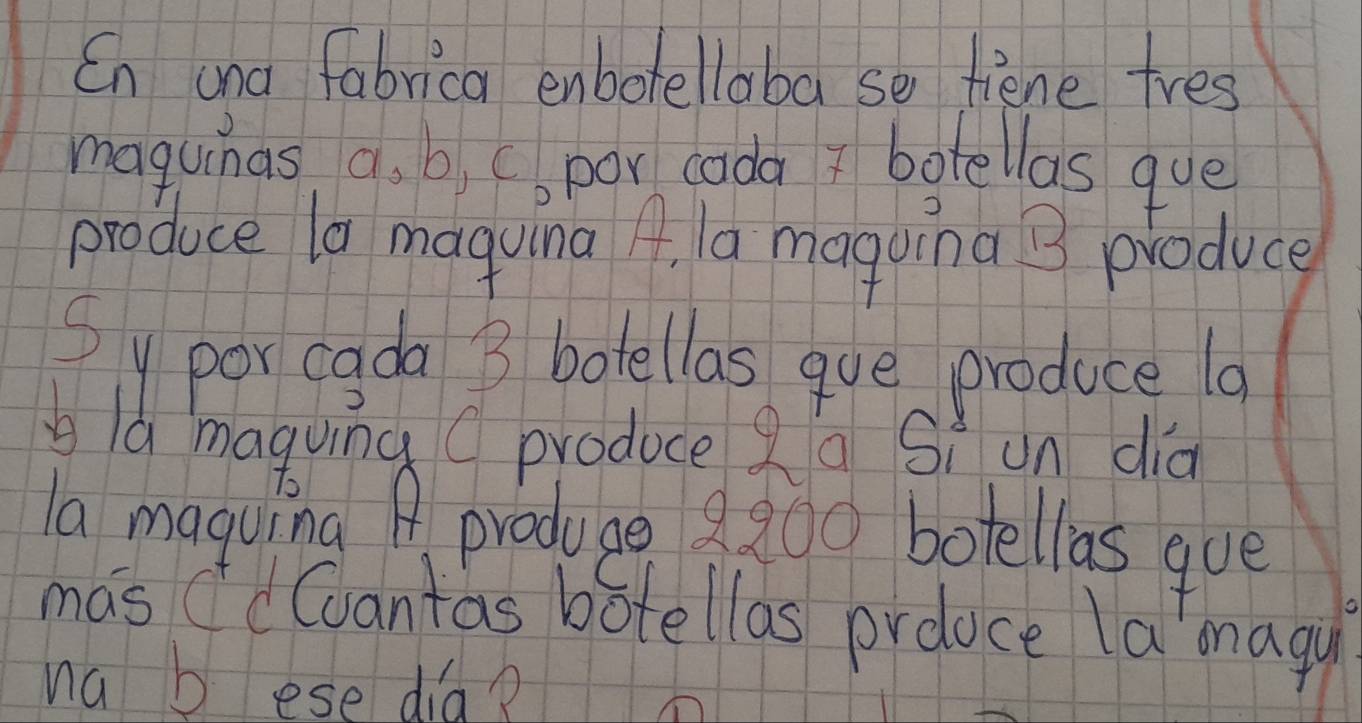 En una fabrica enbotellaba se tiene tres
maquinas a, b, c, por cada 7 botellas que
produce la maquina A, la maquina B produce
5 y por cada 3 botellas que produce la
b la maquina C produce 2 a Si un día
la maquina A produge 2200 botellas que
más C d Cuantas botellas prduce la maqui
na b ese día?